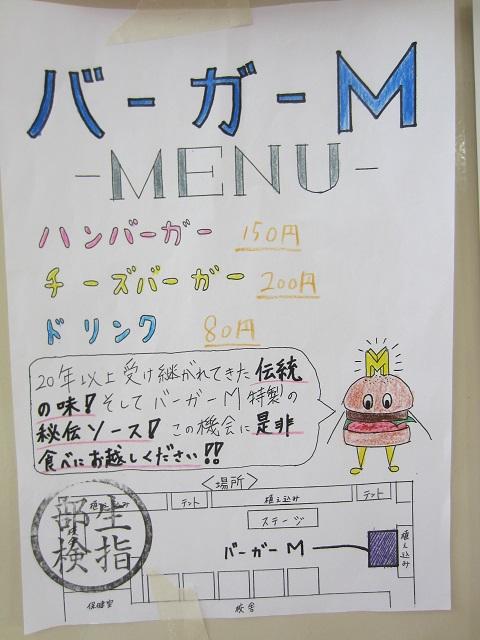 バーガーM
-MENU-
ハンバーガー 150円
チーズバーガー 200円
ドリンク 80円
M
20年以上受け継がれてきた伝統
の味!そしてバーガーM特製の
秘伝ソース!この機会に是非
食べにお越しください!!
<場所>
植え込み テント 植え込み テント
ステージ
植え込み
バーガーM
保健室 校舎
生指
部検